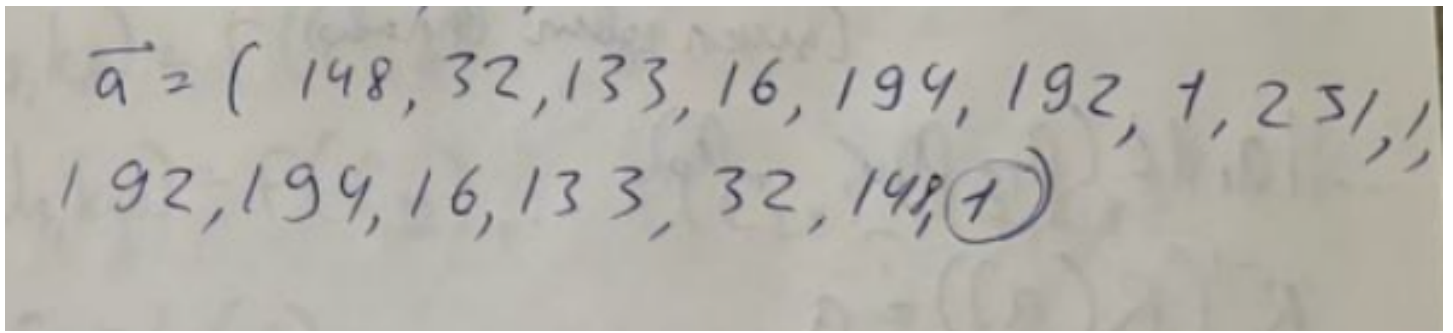 a⃗ = ( 148, 32, 133, 16, 194, 192, 1, 251, 1,
192, 194, 16, 133, 32, 148, 1)